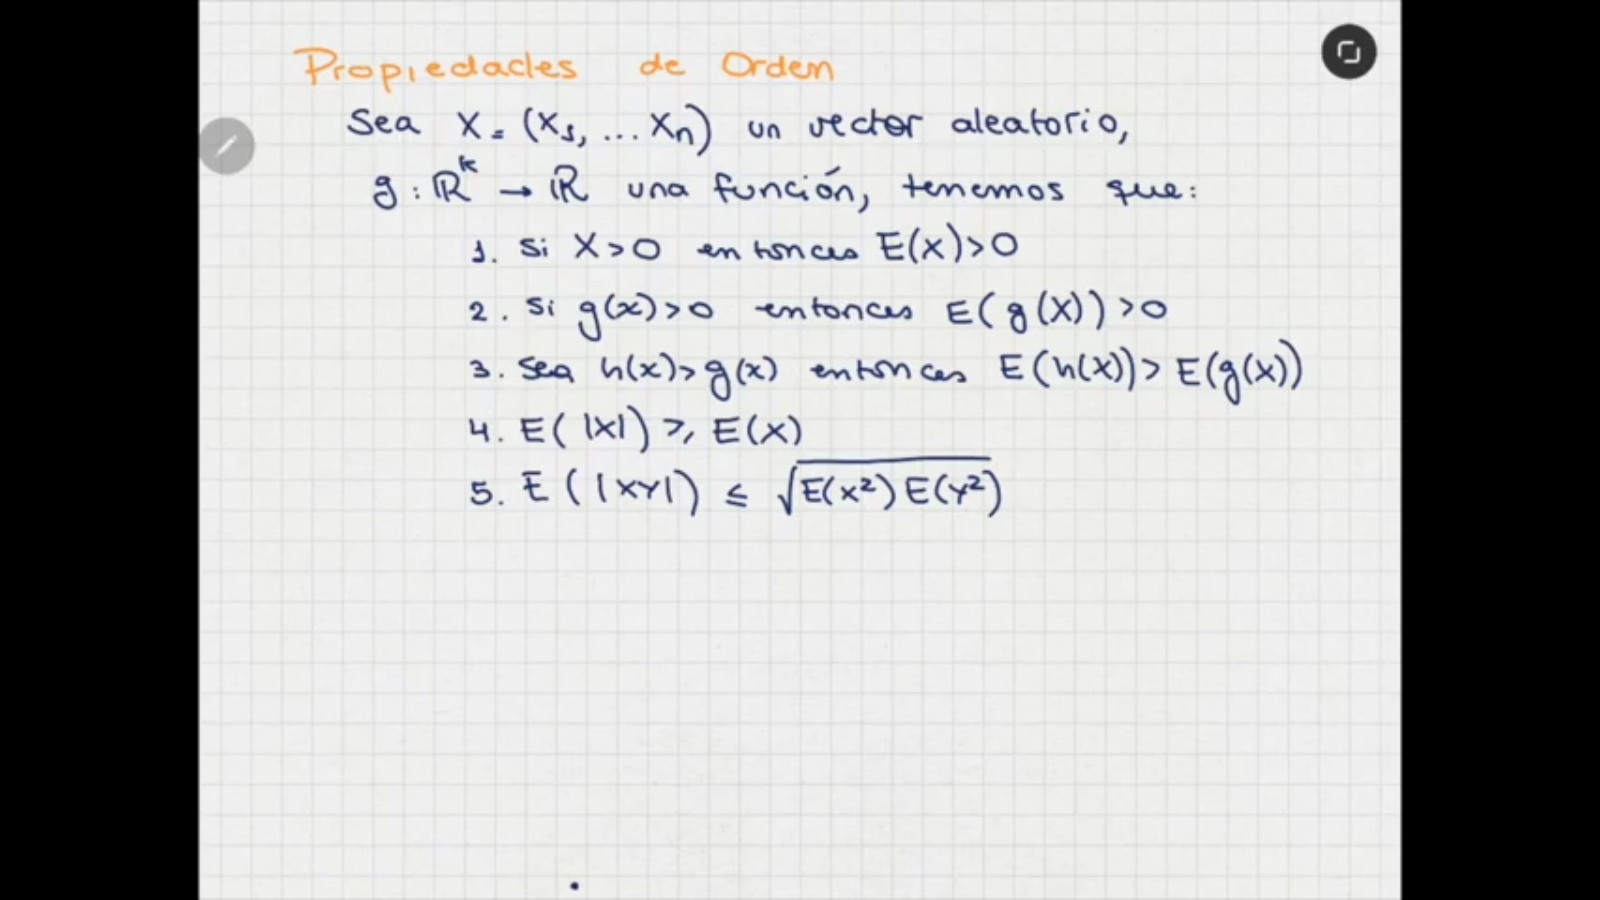 Propiedades de Orden
Sea X = (X₁, ... Xn) un vector aleatorio,
g : ℝᵏ → ℝ una función, tenemos que:
1. Si X > 0 entonces E(X) > 0
2. Si g(x) > 0 entonces E(g(X)) > 0
3. Sea h(x) > g(x) entonces E(h(X)) > E(g(X))
4. E(|X|) ≥ E(X)
5. E(|XY|) ≤ √E(X²) E(Y²)